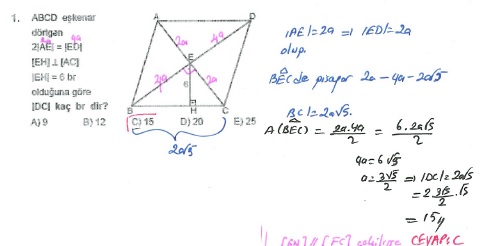 1. ABCD eşkenar
dörtgen
2|AE| = |ED|
2a 4a
[EH] ⊥ [AC]
|EH| = 6 br
olduğuna göre
|DC| kaç br dir?
A) 9 B) 12 C) 15 D) 20 E) 25
A D
2a 4a
E
4a 6 2a
B H C
2a√5
|AE|=2a ⇒ |ED|=2a
olup.
BEC de pisagor 2a-4a-2a√5
BC|=2a√5.
A(BEC) = 2a.4a/2 = 6.2a√5/2
4a=6√5
a=3√5/2 ⇒ |DC|=2a√5
=2 3√5/2.√5
=15//
CEVAP:C